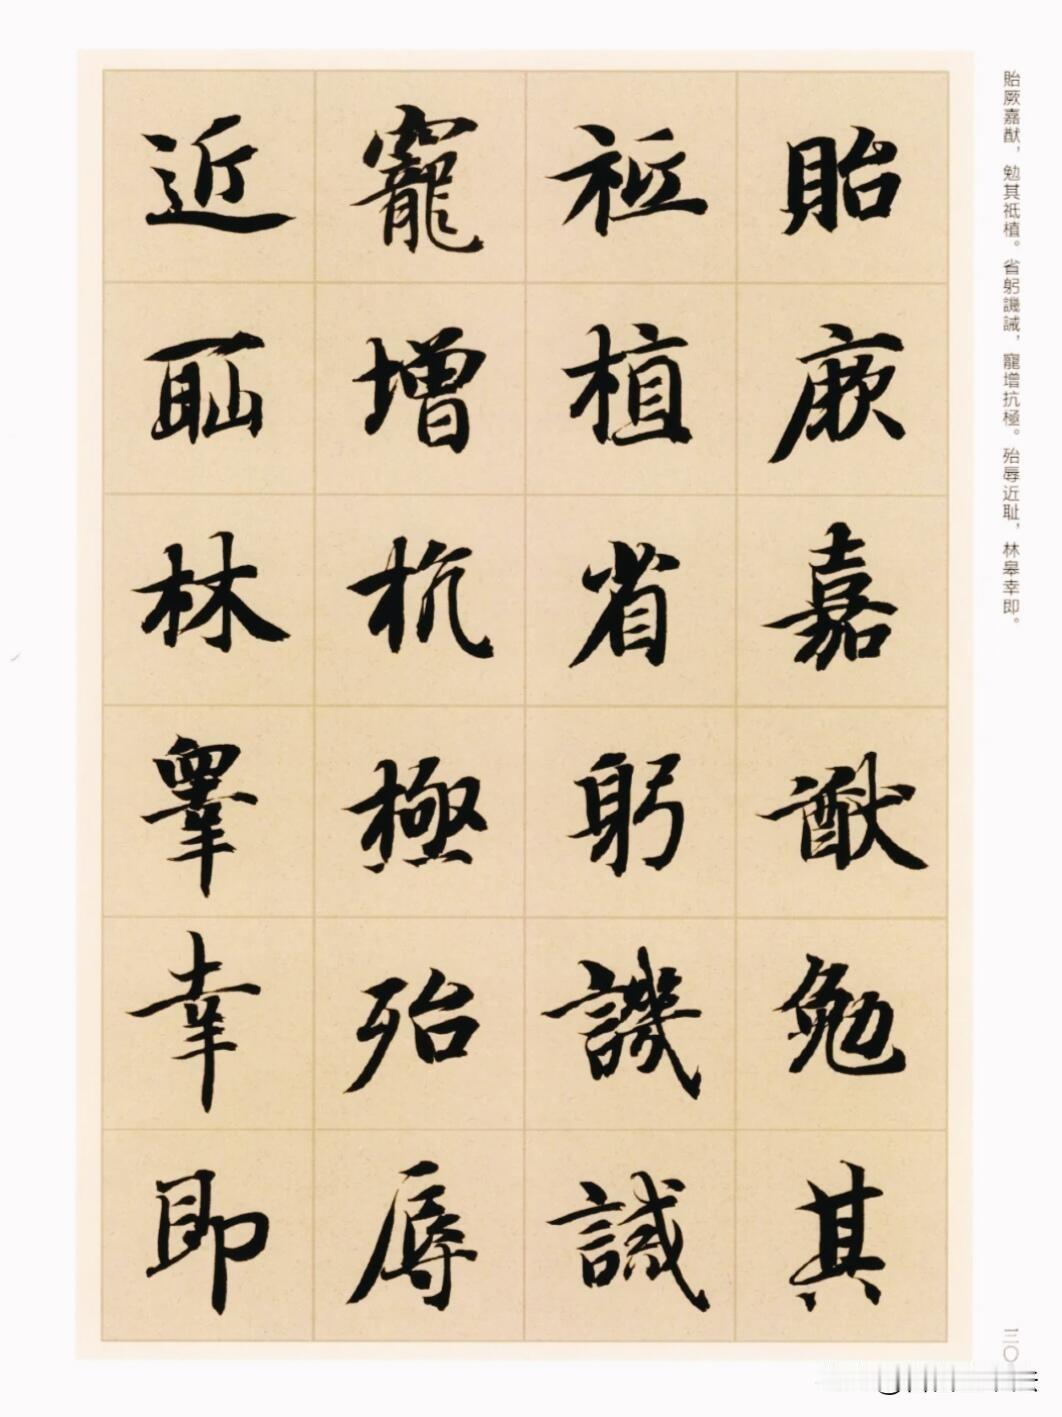 貽厥嘉猷勉其
祗植省躬譏誡
寵增抗極殆辱
近耻林皋幸即
貽厥嘉猷，勉其祗植。省躬譏誡，寵增抗極。殆辱近耻，林皋幸即。
三〇